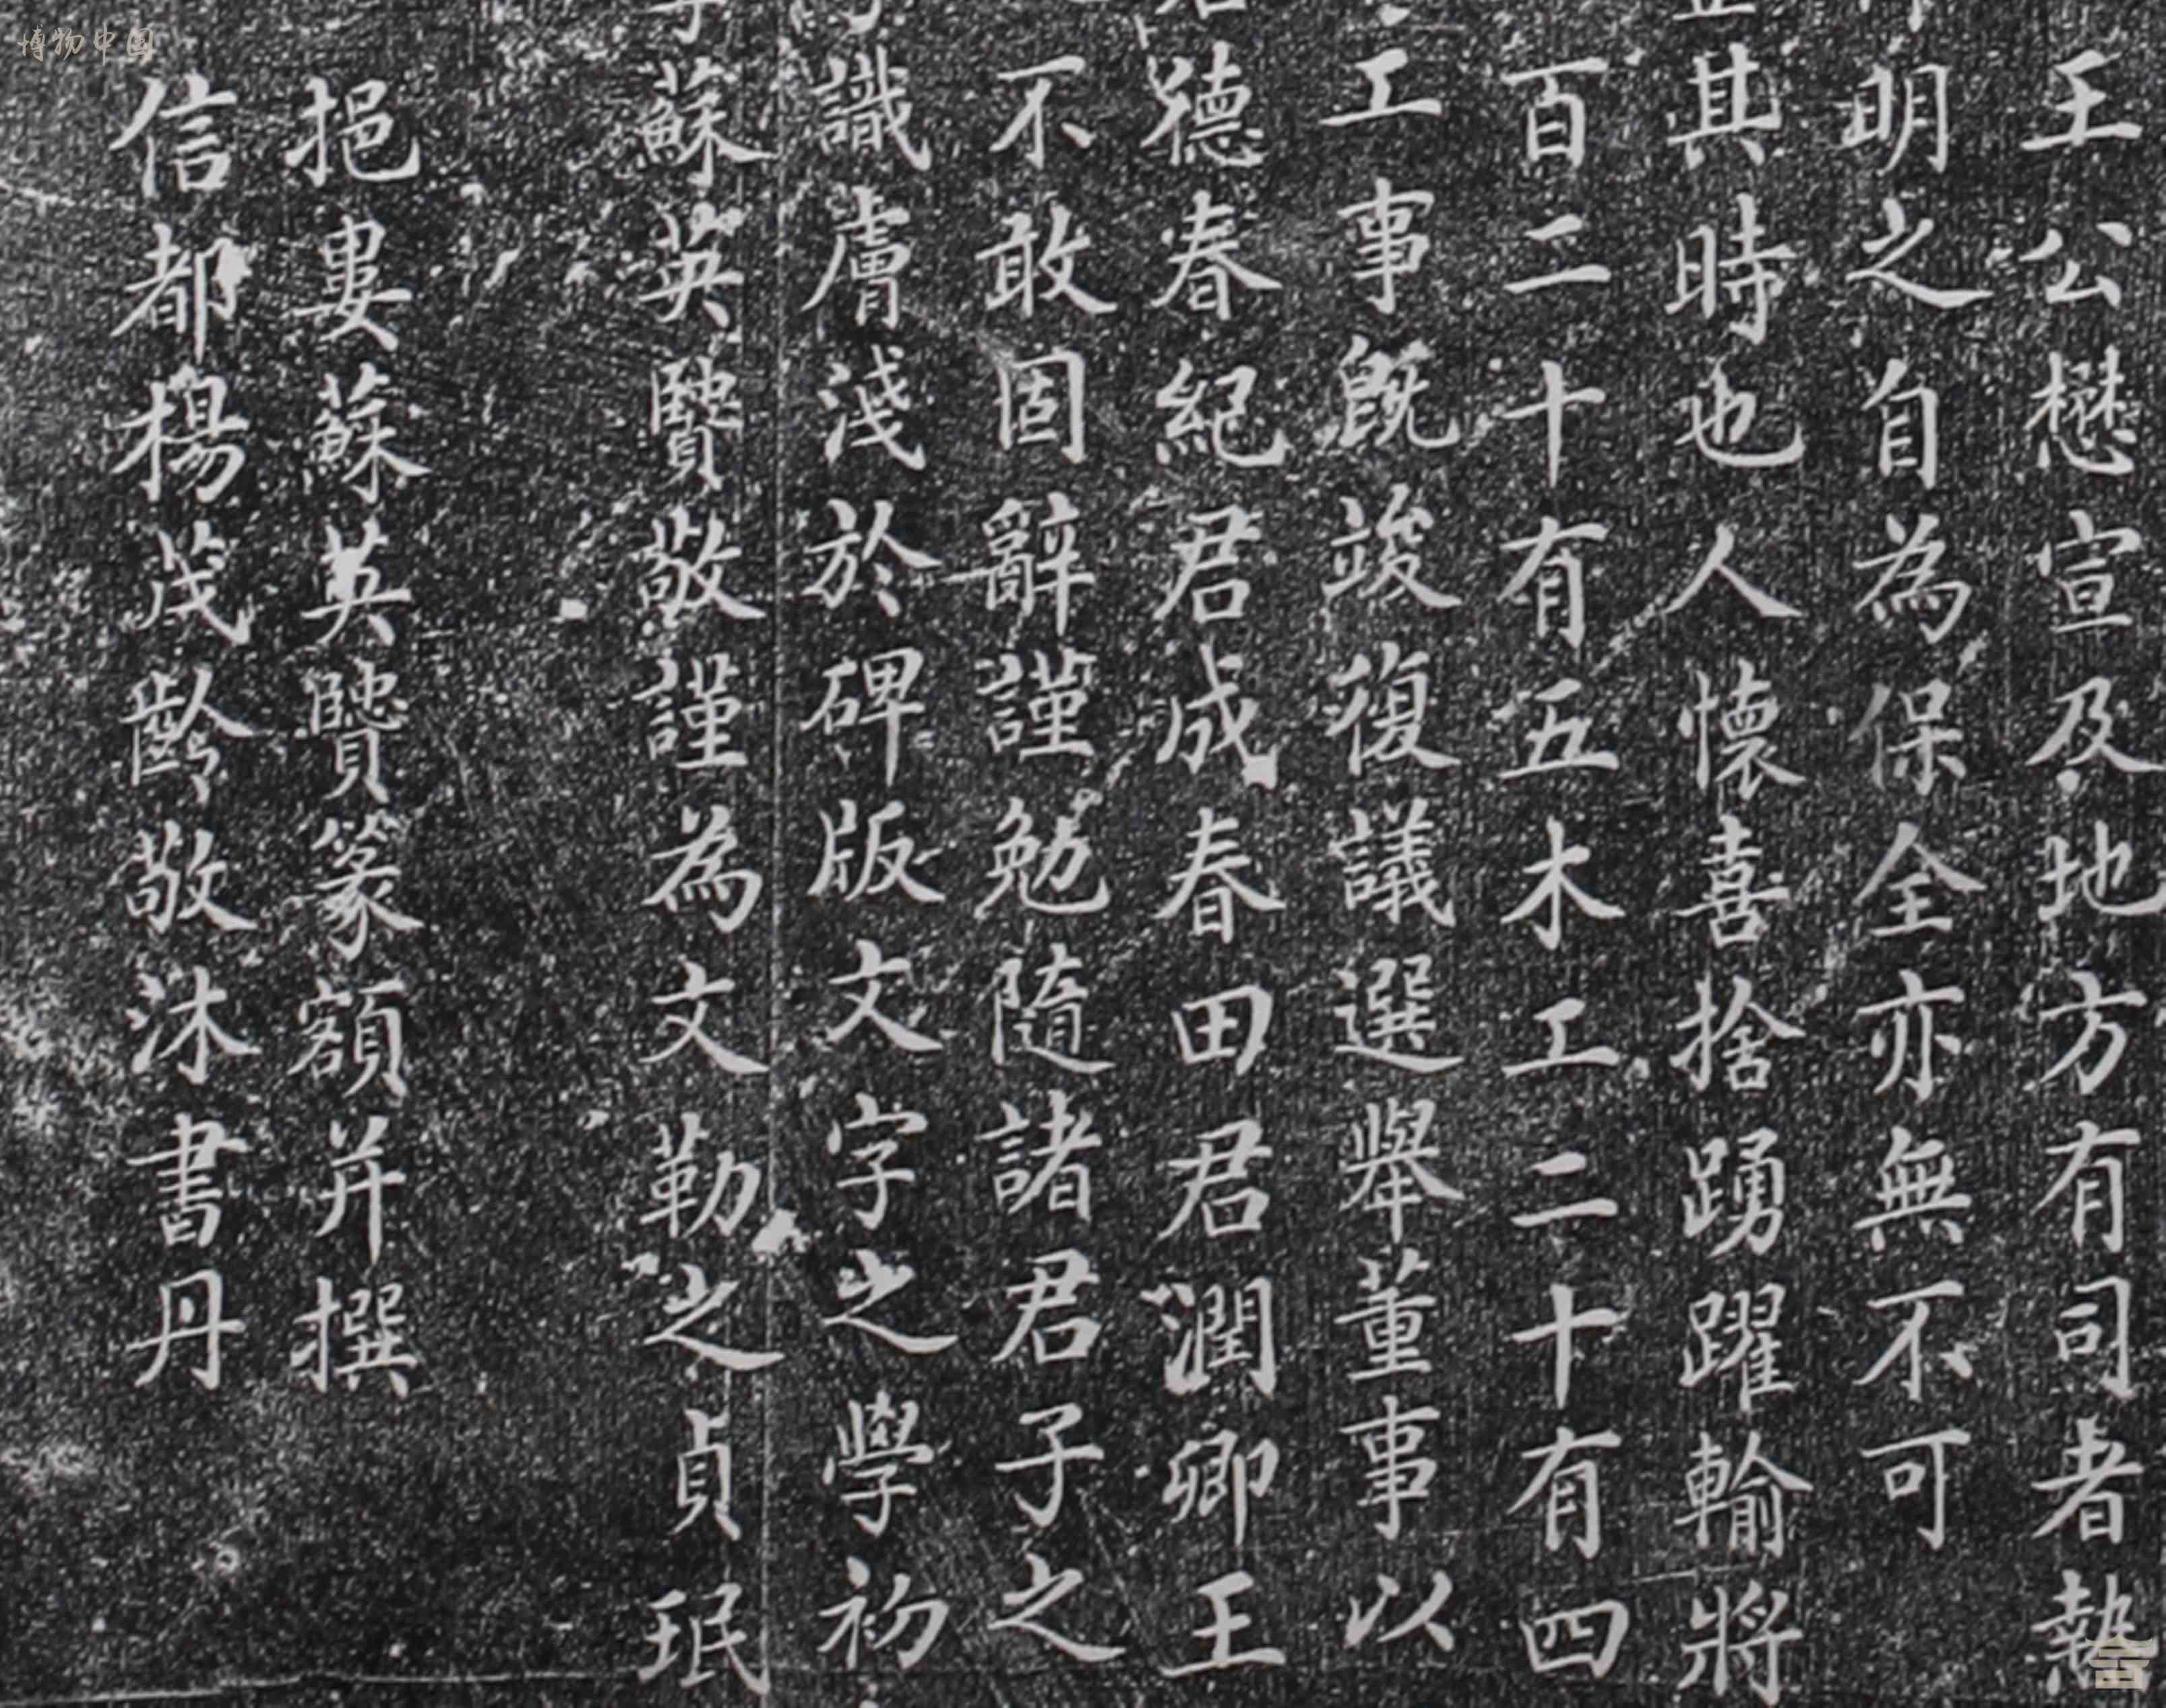 王公懋宣及地方有司者熱
明之自為保全亦無不可
其時也人懷喜捨踴躍輸將
百二十有五木工二十有四
工事既竣復議選舉董事以
聽春紀君成春田君潤卿王
不敢固辭謹勉隨諸君子之
識膚淺於碑版文字之學初
蘇英贒敬謹為文勒之貞珉
挹婁蘇英贒篆額并撰
信都楊茂齡敬沐書丹
博物中国